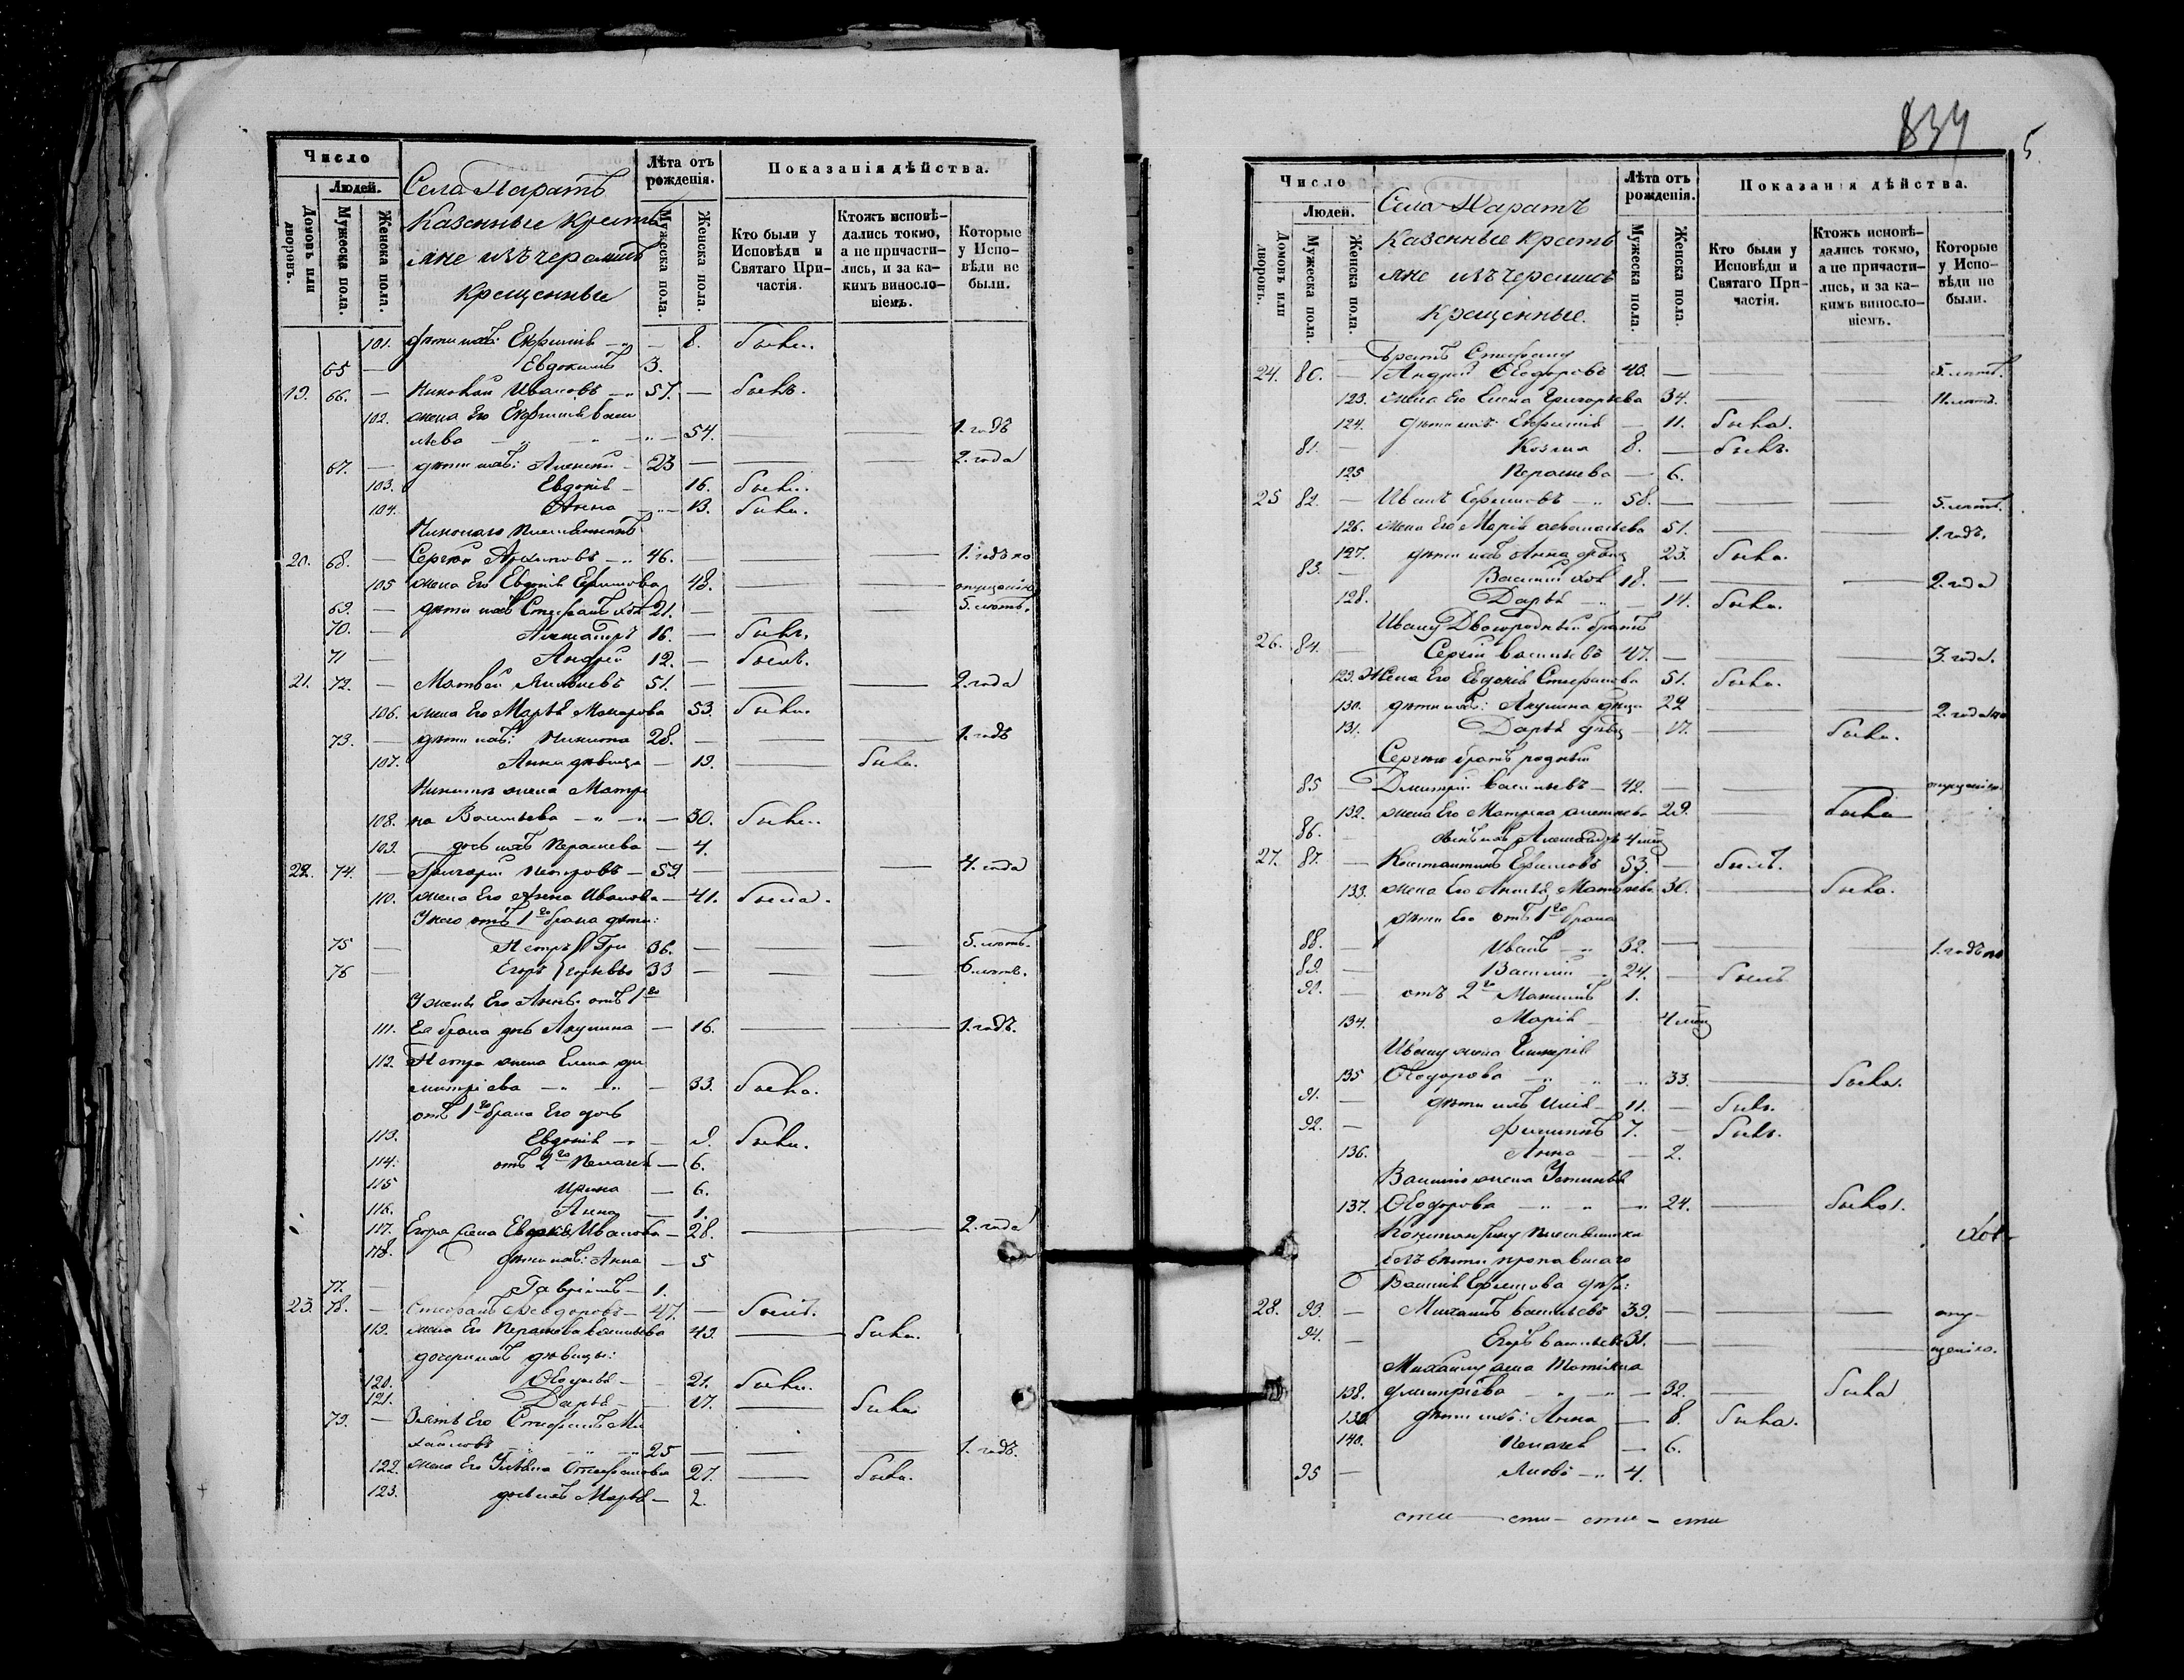 Число
Людей.
Домовъ или дворовъ.
Мужеска пола.
Женска пола.
Села Паратъ
Казенные кресть
яне изъ черемисъ
крещенные
Лѣта отъ рожденія.
Мужеска пола.
Женска пола.
Показанія дѣйства.
Кто были у Исповѣди и Святаго При-
частія.
Ктожъ исповѣ-
дались токмо,
а не причасти-
лись, и за ка-
кимъ виносло-
віемъ.
Которые
у Испо-
вѣди не
были.
101. дѣти ихъ: — 8. была.
65 — Евдокимъ 3.
19. 66. — Ивановъ 57. — былъ.
102. жена его
— 54. — — 1. годъ
67. — дѣти ихъ: Алексѣй 23 — — 2. года
103. Евдокія — 16. была.
104. Анна — 13. была.
племянникъ
20. 68. — Сергѣй 46. — — — 1. годъ по
105 жена его Евдокія Ефимова 48. — — опущенію
69. — дѣти ихъ Стефанъ хол. 21. — — 5. лѣтъ.
70. — Александръ 16. — былъ.
71 — Андрей 12. — былъ.
21. 72. — Матвей Яковлевъ 51. — — — 2. года
106. жена его Марѳа Макарова 53. была.
73. — дѣти ихъ: Никита 28. — — — 1. годъ
107. Анна дѣвица — 19. — была.
Никиты жена Матре
108. на Васильева — 30. была.
109. дочь ихъ Параскева — 4.
22. 74. — Григорій Петровъ — 59 — — 4. года
110. жена его Анна Иванова — 41. была.
У него отъ 1го брака дѣти:
75 — Петръ } Гри 36. — — — 5. лѣтъ.
76 — Егоръ } горьевы 33 — — — 6. лѣтъ.
У жены его Анны отъ 1го
111. ея брака дочь Акулина — 16. — — 1. годъ.
112. Петра жена Елена Ди
митріева — 33. была.
отъ 1го брака его дочь
113. Евдокія — 9. была.
114. отъ 2го Пелагея — 6.
115 Ирина — 6.
116. Анна — 1.
117. Егора жена Евдокія Иванова — 28. — — 2. года
118. дѣти ихъ: Анна — 5
77. — Гавріилъ — 1.
23. 78. — Стефанъ Ѳеодоровъ — 47. — былъ.
119. жена его Параскева Васильева 49. — была.
дочери ихъ дѣвицы:
120. — 21. была.
121. Дарья — 17. — была.
79. — Зять его Стефанъ Ми
хайловъ 25 — — — 1. годъ.
122. жена его Стефанова 27. — была.
123. дочь ихъ Марѳа — 2.
834
5.
Число
Людей.
Домовъ или дворовъ.
Мужеска пола.
Женска пола.
Села Паратъ
Казенные кресть
яне изъ черемисъ
крещенные.
Лѣта отъ рожденія.
Мужеска пола.
Женска пола.
Показанія дѣйства.
Кто были у
Исповѣди и
Святаго При-
частія.
Ктожъ исповѣ-
дались токмо,
а не причасти-
лись, и за ка-
кимъ виносло-
віемъ.
Которые
у Испо-
вѣди не
были.
Братъ Стефану
24. 80. — Андрей Ѳеодоровъ 40. — — — 5. лѣтъ.
123. жена его Елена Григорьева 34. — — 11. лѣтъ.
124. дѣти ихъ: — 11. была.
81. — Козма 8. — былъ.
125 Параскева — 6.
25 82. — Иванъ Ефимовъ 58. — — — 5. лѣтъ.
126. жена его Марія 51. — — 1. годъ.
127. дѣти ихъ Анна дѣвица 23. была.
83. — Василій хол. 18. — — — 2. года
128. Дарья — 14. была.
Ивану двоюродный братъ
26. 84. — Сергѣй Васильевъ 47. — — — 3. года.
129. Жена его Евдокія Стефанова 51. была.
130. дѣти ихъ: Акулина дѣвица 22 — — 2. года по
131. Дарья дѣвица — 17. — была.
Сергѣю братъ родный
85 — Димитрій Васильевъ — 42. — — — опущенію.
132. жена его Матрона Алексѣева 29. была
86. — сынъ ихъ Александръ 4 мѣс
27. 87. — Константинъ Ефимовъ 53. — былъ.
133. жена его 30. — была.
дѣти его отъ 1го брака
88. — Иванъ 32. — — — 1. годъ по
89. — Василій 24. — былъ
90. — отъ 2го Максимъ 1.
134. Марія — 4 мѣс
Ивану жена Гликерія
135 Ѳеодорова 33. — была.
91. — дѣти ихъ Илія — 11. — былъ.
92. — Филиппъ 7. — былъ.
136. Анна — 2.
Василія жена Устинья
137. Ѳеодорова — 24. — была.
Константину племянники
безъ вѣсти пропавшаго
Василія Ефимова дѣти:
28. 93. — Михаилъ Васильевъ 39. — — — опу-
94. — Егоръ Васильевъ 31. — — — щенію.
Михаилу жена Татіяна
138. Димитріева — 32. — была
139. дѣти ихъ: Анна — 8. была.
140. Пелагея — 6.
95 — Яковъ — 4.